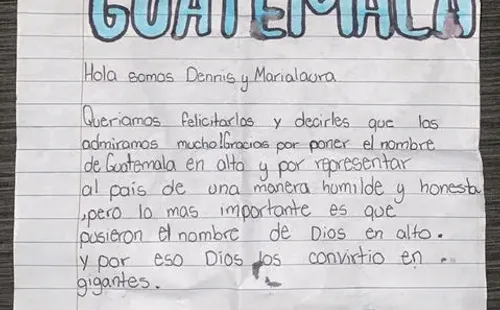 GUATEMALA
Hola somos Dennis y Marialaura
Queriamos felicitarlos y decirles que los
admiramos mucho!Gracias por poner el nombre
de Guatemala en alto y por representar
al país de una manera humilde y honesta
,pero lo mas importante es que
pusieron el nombre de Dios en alto.
y por eso Dios los convirtio en
gigantes.